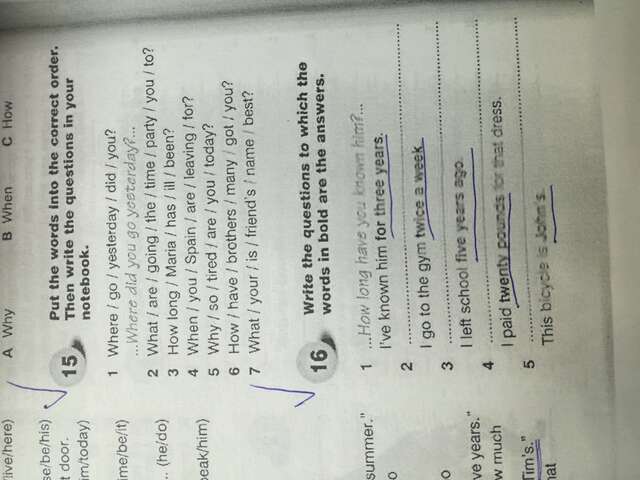 A Why B When C How
15 Put the words into the correct order.
Then write the questions in your
notebook.
1 Where / go / yesterday / did / you?
...Where did you go yesterday?...
2 What / are / going / the / time / party / you / to?
3 How long / Maria / has / ill / been?
4 When / you / Spain / are / leaving / for?
5 Why / so / tired / are / you / today?
6 How / have / brothers / many / got / you?
7 What / your / is / friend's / name / best?
16 Write the questions to which the
words in bold are the answers.
1 ...How long have you known him?...
I've known him for three years.
2 ...............
I go to the gym twice a week.
3 ...............
I left school five years ago.
4 ...............
I paid twenty pounds for that dress.
5 ...............
This bicycle is John's.
live/here)
se/be/his)
t door.
im/today)
ime/be/it)
... (he/do)
eak/him)
summer."
o
o
ve years."
w much
Tim's."
hat